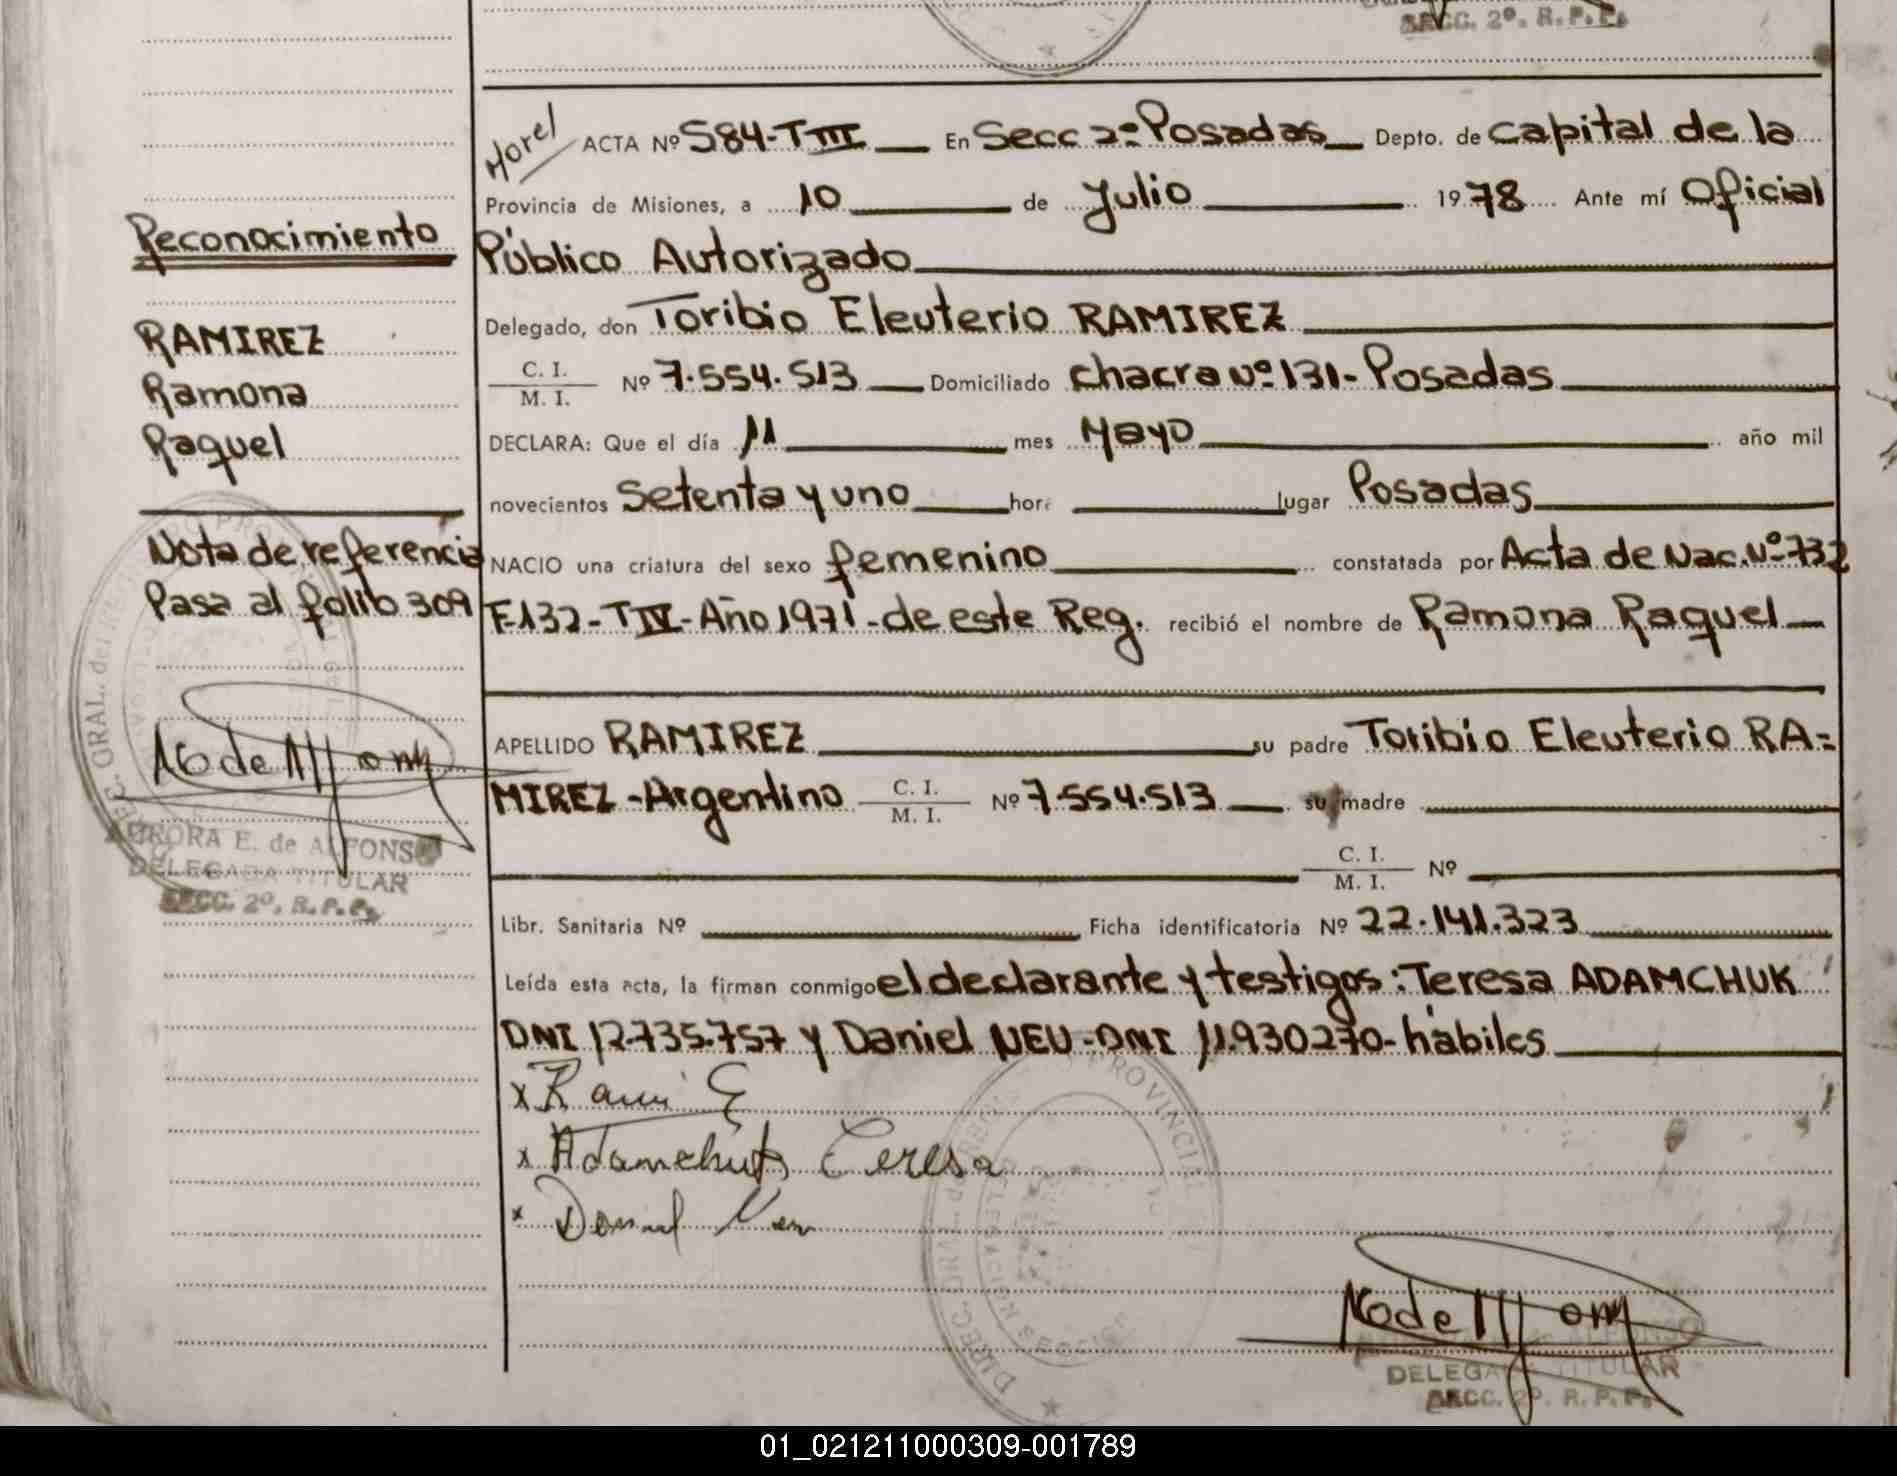 SECC. 2º. R.P.P.
Reconocimiento
RAMIREZ
Ramona
Raquel
Nota de referencia
Pasa al folio 309
AURORA E. de ALFONSO
DELEGADA TITULAR
SECC. 2º. R.P.P.
ACTA Nº 584-TIII En Secc 2º Posadas Depto. de Capital de la
Provincia de Misiones, a 10 de Julio 1978 Ante mí Oficial
Público Autorizado
Delegado, don Toribio Eleuterio RAMIREZ
C. I.
M. I. Nº 7.554.513 Domiciliado Chacra Nº 131-Posadas
DECLARA: Que el día 11 mes Mayo año mil
novecientos Setenta y uno hora lugar Posadas
NACIO una criatura del sexo femenino constatada por Acta de Nac. Nº 732
F-132-TIV-Año 1971-de este Reg. recibió el nombre de Ramona Raquel
APELLIDO RAMIREZ su padre Toribio Eleuterio RA=
MIREZ-Argentino C. I.
M. I. Nº 7.554.513 su madre
C. I.
M. I. Nº
Libr. Sanitaria Nº Ficha identificatoria Nº 22.141.323
Leída esta acta, la firman conmigo el declarante y testigos: Teresa ADAMCHUK
DNI 12.735.757 y Daniel NEU-DNI 11.930270-hábiles
x Rami
x Adamchuk Teresa
x Daniel Neu
PROVINCIAL
DIREC. GRAL.
de ALFONSO
DELEGADA TITULAR
SECC. 2º. R.P.P.
01_021211000309-001789